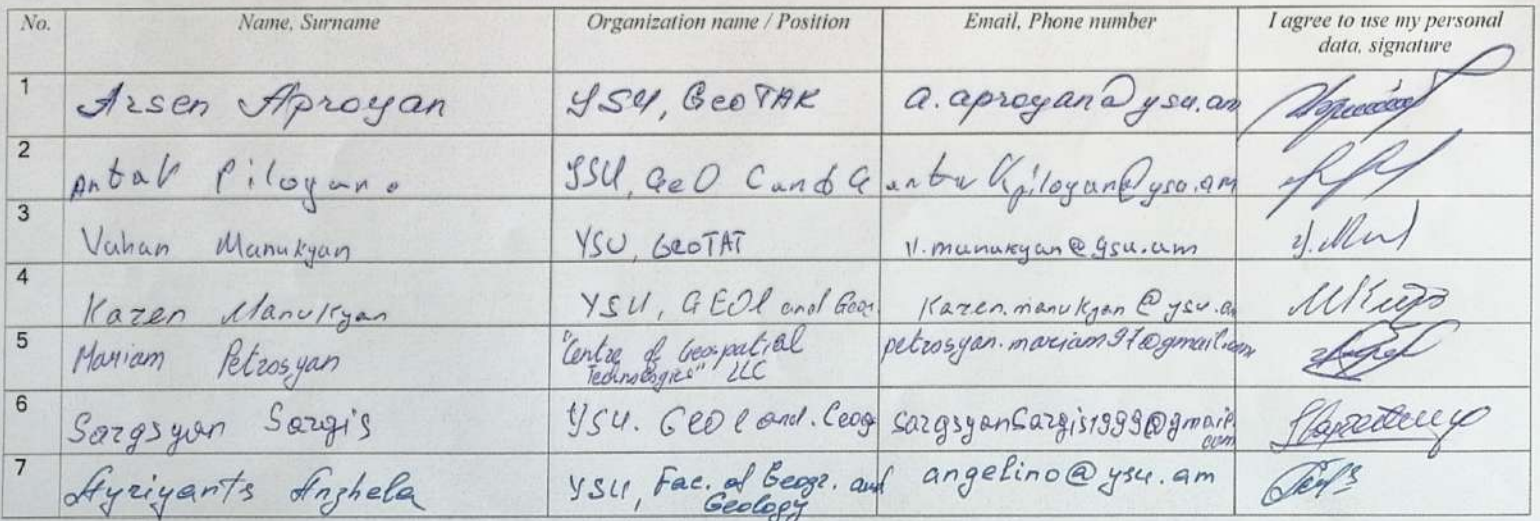 No. Name, Surname Organization name / Position Email, Phone number I agree to use my personal data, signature
1 Arsen Aproyan YSU, GeoTAK a.aproyan@ysu.am
2 Antak Piloyan YSU, GeO Cand G antakpiloyan@ysu.am
3 Vahan Manukyan YSU, GeoTAT v.manukyan@ysu.am
4 Karen Manukyan YSU, GEOl and Geog. Karen.manukyan@ysu.a
5 Mariam Petrosyan "Centre of Geospatial Technologies" LLC petrosyan.mariam97@gmail.com
6 Sargsyan Sargis YSU. GEOl and. Geog SargsyanSargis1999@gmail.com
7 Hyriyants Anzhela YSU, Fac. of Geogr. and Geology angelino@ysu.am